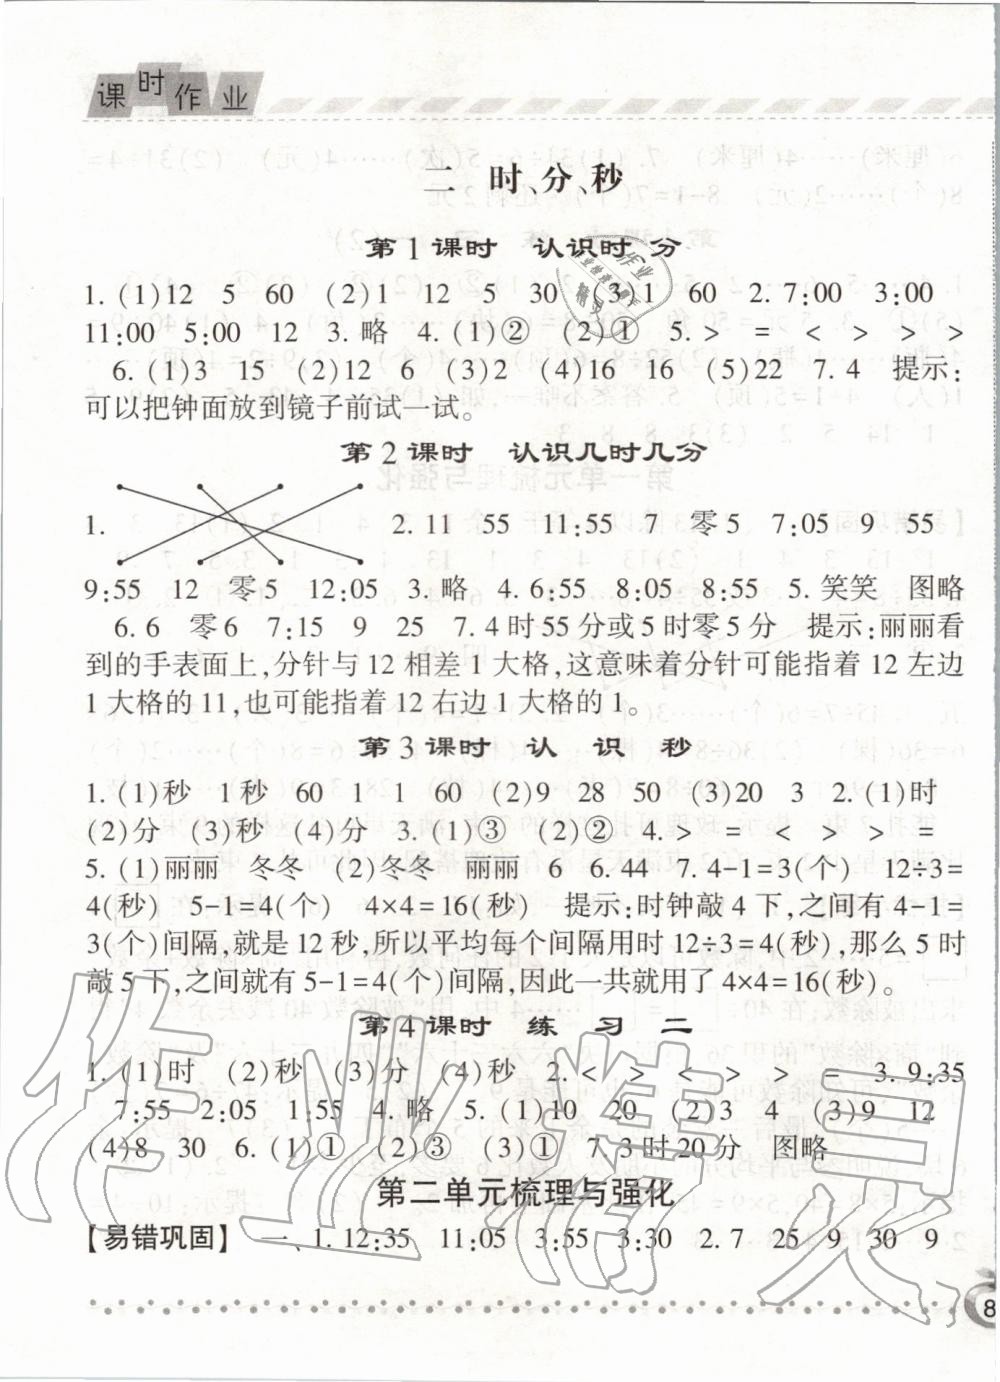 课时作业
二 时、分、秒
第1课时 认识时、分
1. (1)12 5 60 (2)1 12 5 30 (3)1 60 2. 7:00 3:00
11:00 5:00 12 3. 略 4. (1)② (2)① 5. > = < > > >
6. (1)3 15 (2)12 6 (3)2 (4)16 16 (5)22 7. 4 提示:
可以把钟面放到镜子前试一试。
第2课时 认识几时几分
1. 2. 11 55 11:55 7 零5 7:05 9 55
9:55 12 零5 12:05 3. 略 4. 6:55 8:05 8:55 5. 笑笑 图略
6. 6 零6 7:15 9 25 7. 4时55分或5时零5分 提示:丽丽看
到的手表面上,分针与12相差1大格,这意味着分针可能指着12左边
1大格的11,也可能指着12右边1大格的1。
第3课时 认识秒
1. (1)秒 1秒 60 1 1 60 (2)9 28 50 (3)20 3 2. (1)时
(2)分 (3)秒 (4)分 3. (1)③ (2)② 4. > = < > > =
5. (1)丽丽 冬冬 (2)冬冬 丽丽 6 6. 44 7. 4-1=3(个) 12÷3=
4(秒) 5-1=4(个) 4×4=16(秒) 提示:时钟敲4下,之间有4-1=
3(个)间隔,就是12秒,所以平均每个间隔用时12÷3=4(秒),那么5时
敲5下,之间就有5-1=4(个)间隔,因此一共就用了4×4=16(秒)。
第4课时 练习二
1. (1)时 (2)秒 (3)分 (4)秒 2. < > < > > = 3. 9:35
7:55 2:05 1:55 4. 略 5. (1)10 20 (2)3 4 (3)9 12
(4)8 30 6. (1)① (2)③ (3)① 7. 3时20分 图略
第二单元梳理与强化
【易错巩固】 一、1. 12:35 11:05 3:55 3:30 2. 7 25 9 30 9
8
作业精灵